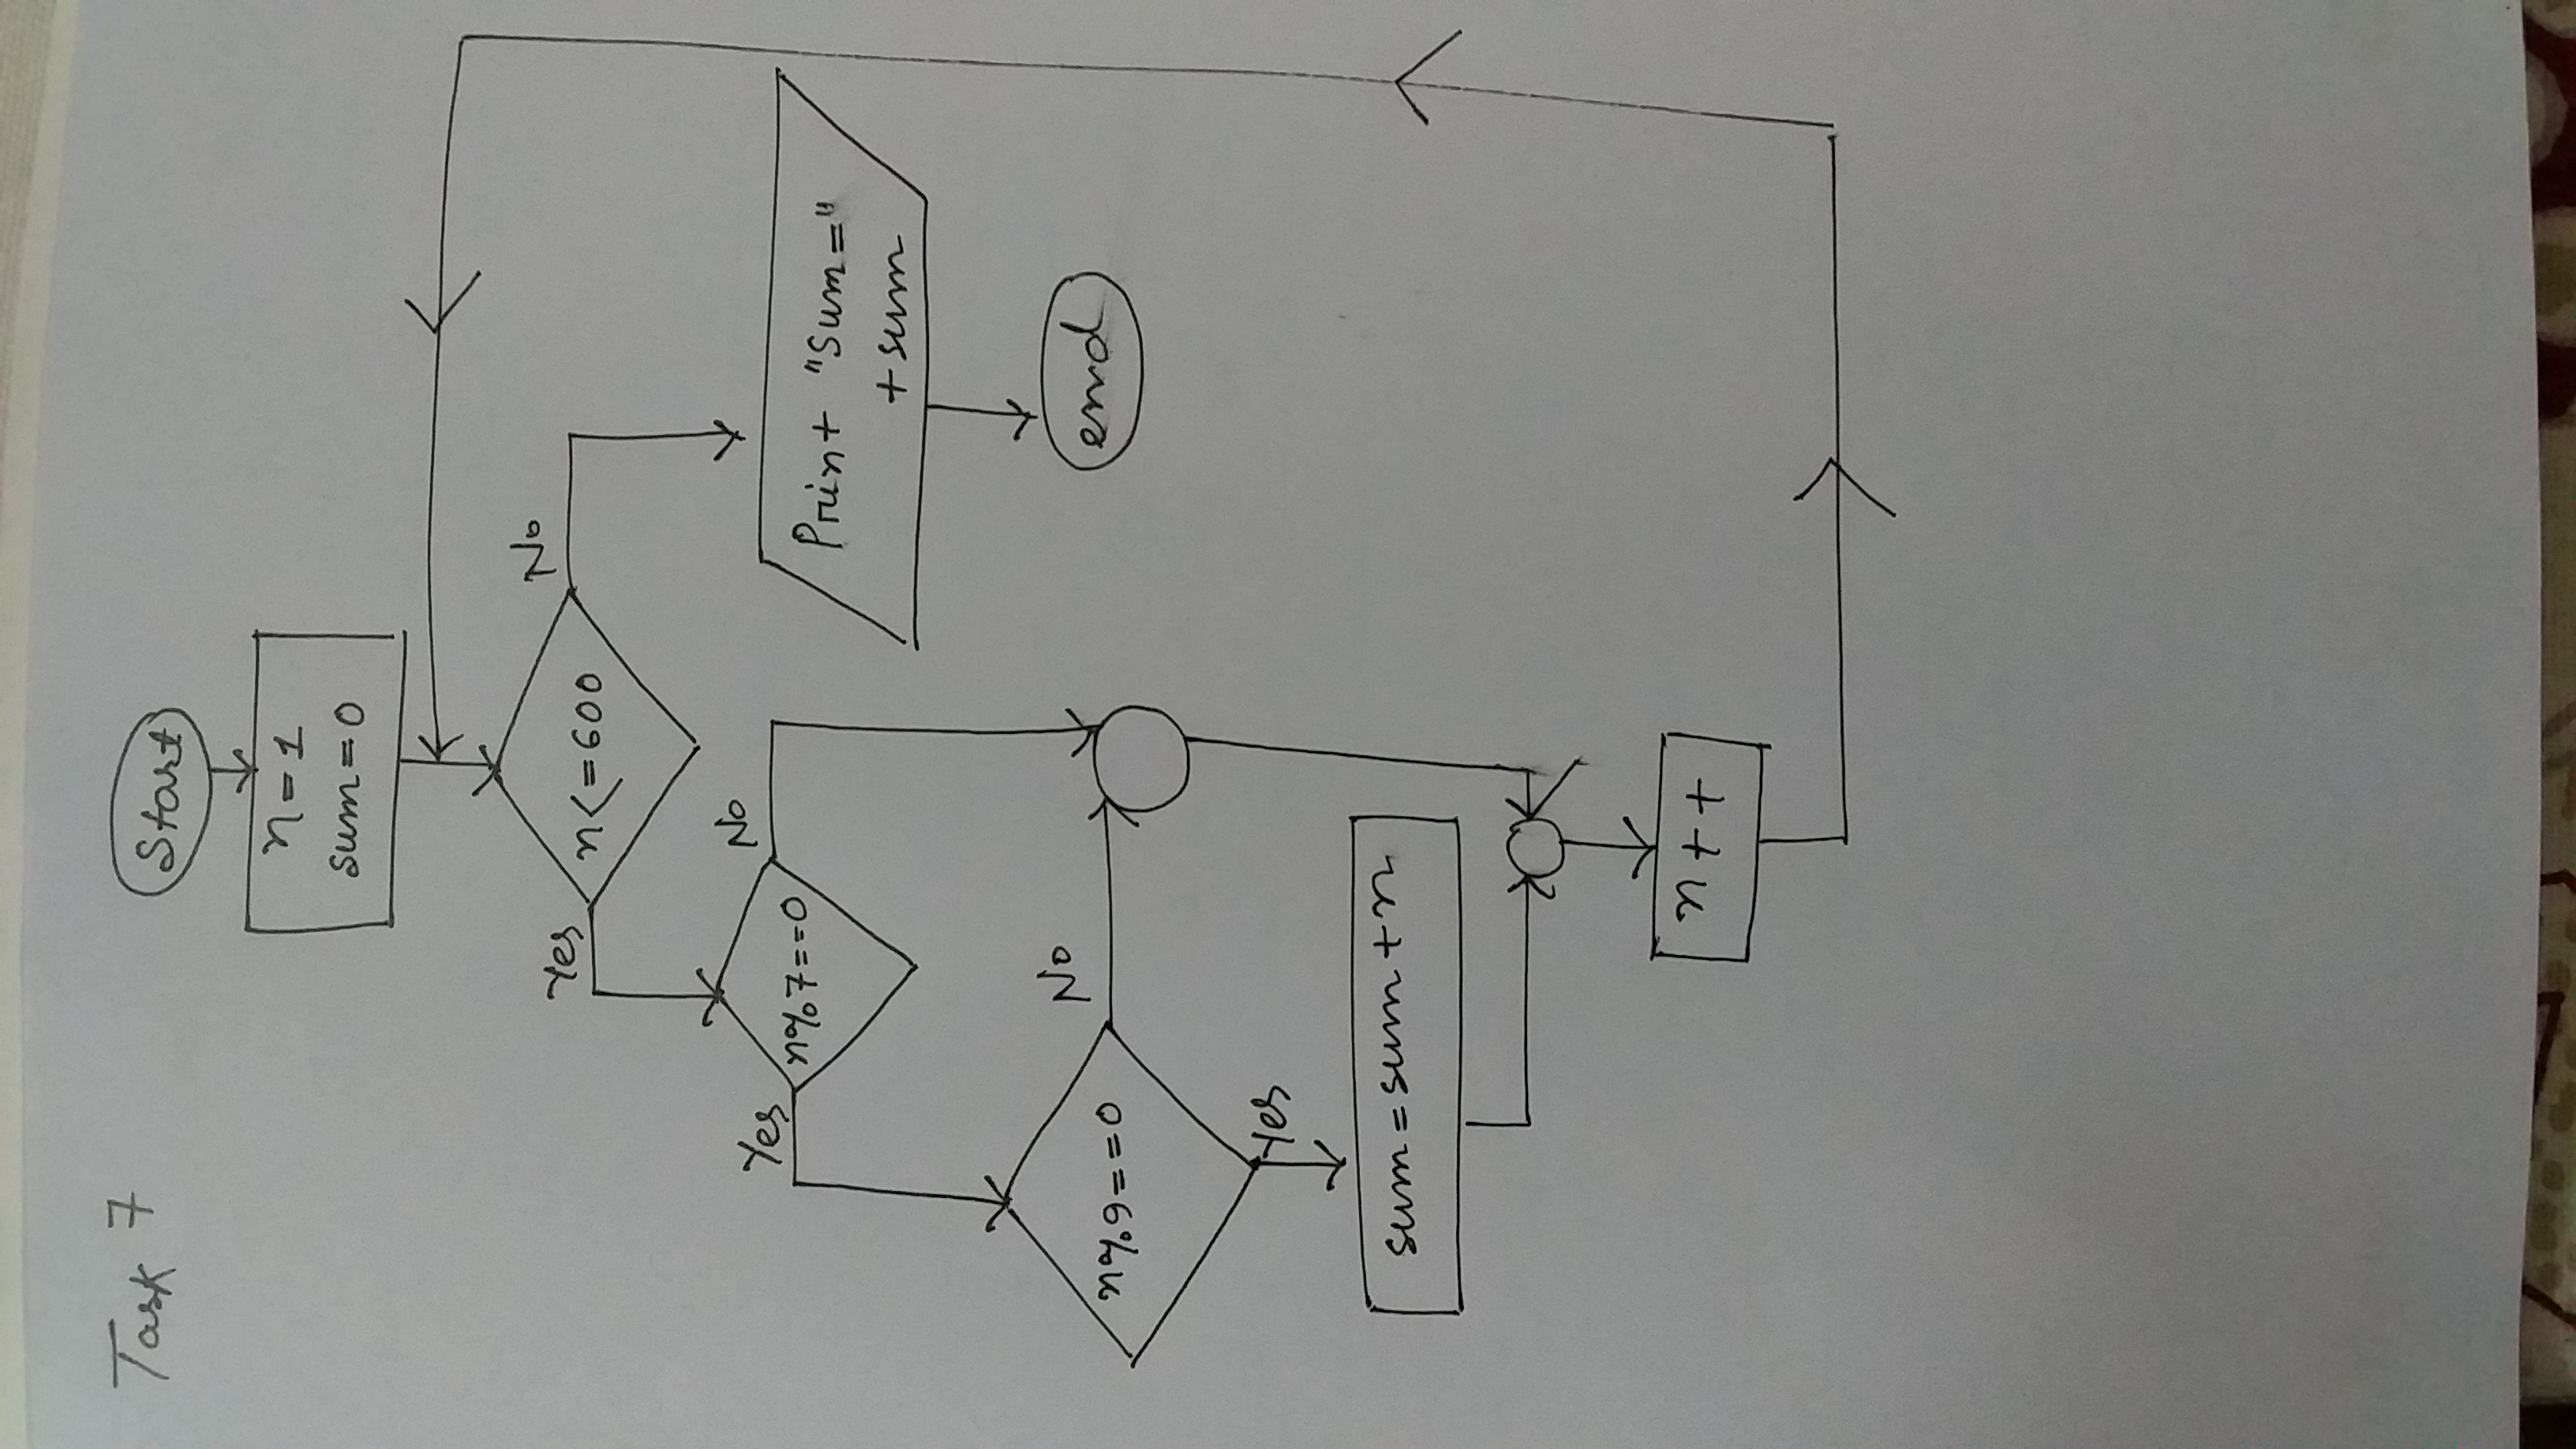 Task 7
Start
n=1
sum=0
Yes
n<=600
No
Yes
n%7==0
No
Print "Sum="
+sum
end
n%9==0
No
Yes
sum=sum+n
n++